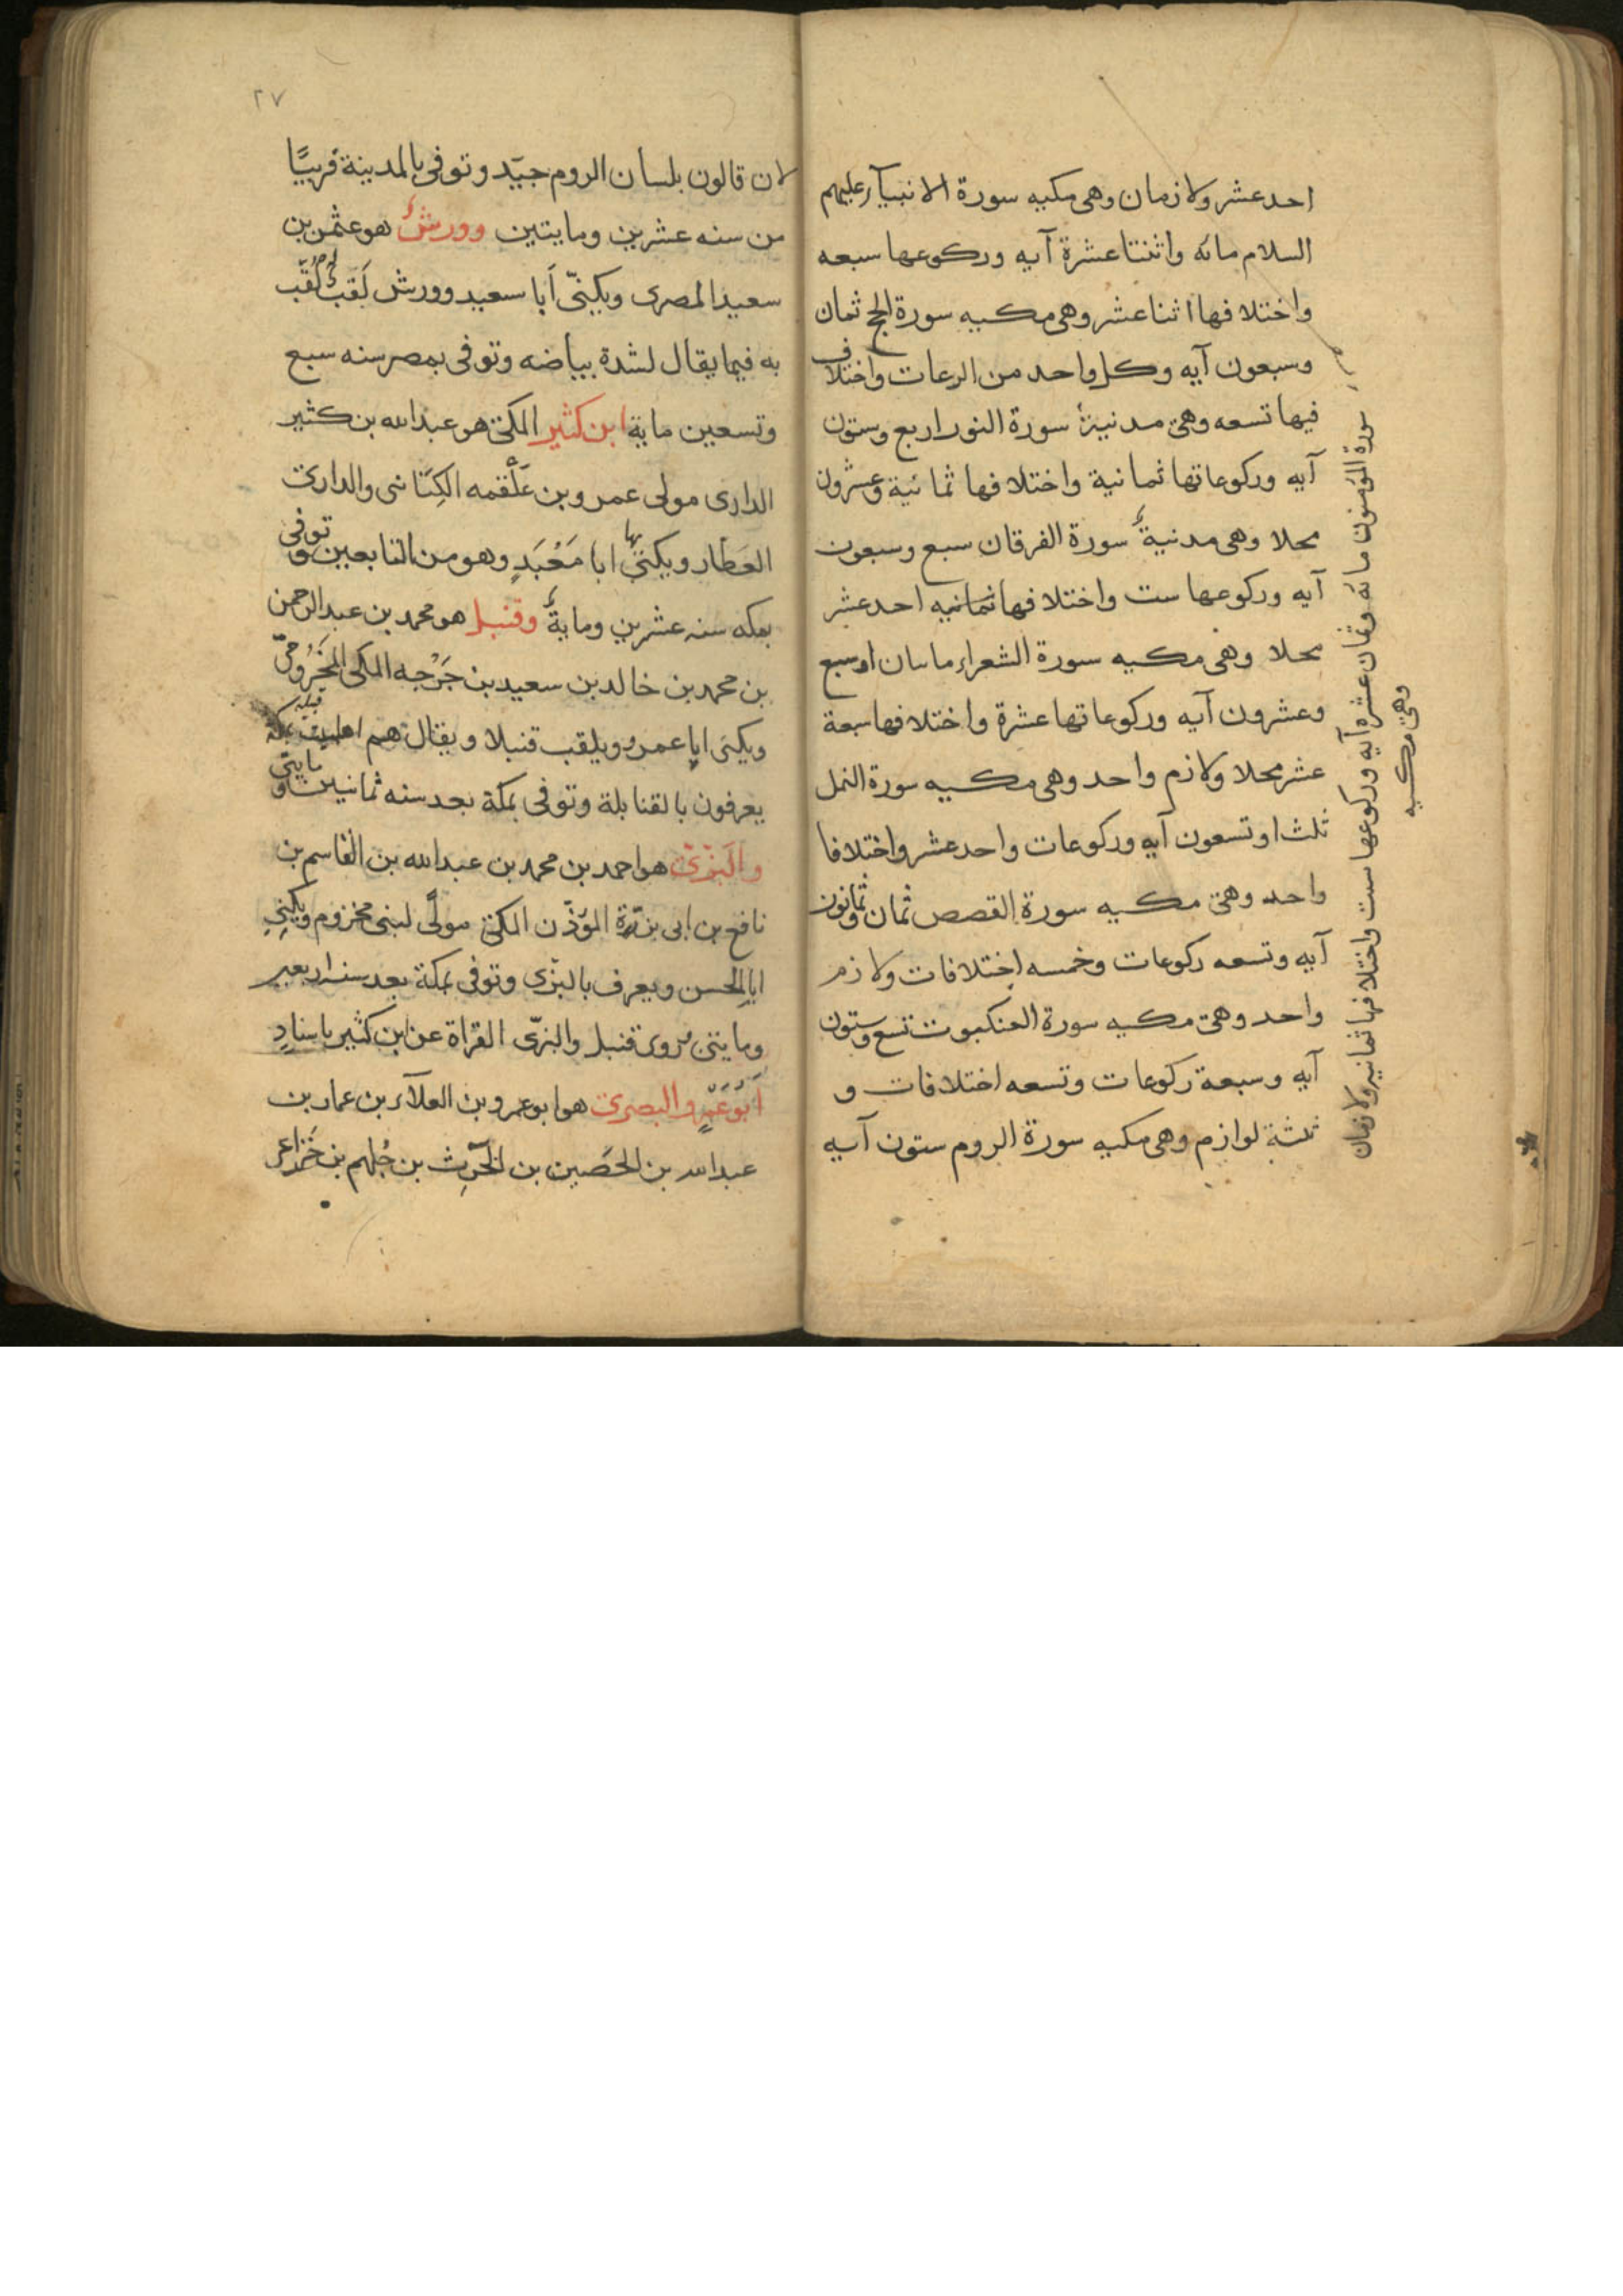 احد عشر ولازمان وهى مكيه سورة الانبيآء عليهم
السلام مائه واثنتا عشرة آيه وركوعها سبعه
واختلافها اثنا عشر وهى مكيه سورة الحج ثمان
وسبعون آيه وكل واحد من الرعات واختلاف
فيها تسعه وهى مدنية سورة النور اربع وستون
آيه وركوعاتها ثمانية واختلافها ثمانية وعشرون
محلا وهى مدنية سورة الفرقان سبع وسبعون
آيه وركوعها ست واختلافها ثمانيه احد عشر
محلا وهى مكيه سورة الشعراء ماىىان او سبع
وعشرون آيه وركوعاتها عشرة واختلافها سبعة
عشر محلا ولازم واحد وهى مكيه سورة النمل
ثلث او تسعون آيه وركوعات واحد عشر واختلافا
واحد وهى مكيه سورة القصص ثمان وثمانون
آيه وتسعه ركوعات وخمسه اختلافات ولازم
واحد وهى مكيه سورة العنكبوت تسع وستون
آيه وسبعة ركوعات وتسعه اختلافات و
ثلثة لوازم وهى مكيه سورة الروم ستون آيه
سورة المؤمنون مائه وثمان عشره آيه وركوعها ست واختلافها ثمانيه ولازمان
وهى مكيه
٢٧
لان قالون بلسان الروم جيّد وتوفى بالمدينة قريبًا
من سنه عشرين ومايتين وورش هو عثمن بن
سعيد المصرى ويكنّى أبا سعيد وورش لَقَبٌ لُقّب
به فيما يقال لشدة بياضه وتوفى بمصر سنه سبع
وتسعين ماية ابن كثير المكى هو عبد الله بن كثير
الدارى مولى عمرو بن عَلْقمه الكِنَانى والدارى
العَطّار ويكنّى ابا مَعْبَدٍ وهو من التابعين وتوفى بها
بمكه سنه عشرين ومايةٌ وقنبل هو محمد بن عبد الرحمن
بن محمد بن خالد بن سعيد بن جَرْجه المكى المَخْزُومىّ
ويكنى ابا عمرو ويلقب قنبلا ويقال هم اهل بيت بمكة
يعرفون بالقنابلة وتوفى بمكة بعد سنه ثمانين ومايتى
والبزّى هو احمد بن محمد بن عبد الله بن القاسم بن
نافع بن ابى بزّة المؤذّن المكى مولًى لبنى مخزوم ويكنى
ابا الحسن ويعرف بالبزّى وتوفى بمكة بعد سنه اربعين
ومايتى فروى قنبل والبزّى القراة عن ابن كثير باسنادٍ
أبُو عَمْرو البصرى هو ابو عمرو بن العلآء بن عمار بن
عبد الله بن الحصين بن الحرث بن جُلهم بن خزاعى